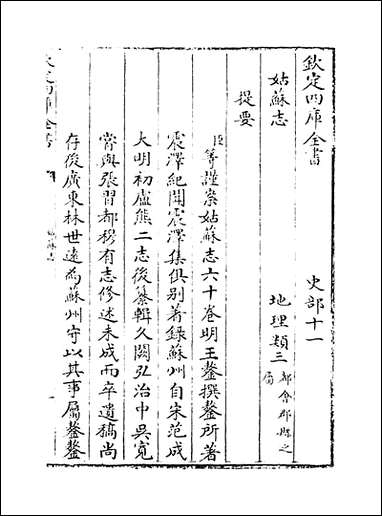 欽定四庫全書
史部十一
姑蘇志
地理類三都會郡縣之屬
提要
臣等謹案姑蘇志六十卷明王鏊撰鏊所著
震澤紀聞震澤集俱別著錄蘇州自宋范成
大明初盧熊二志後纂輯久闕弘治中吳寬
嘗與張習都穆有志修述未成而卒遺稿尚
存後廣東林世遠為蘇州守以其事屬鏊鏊